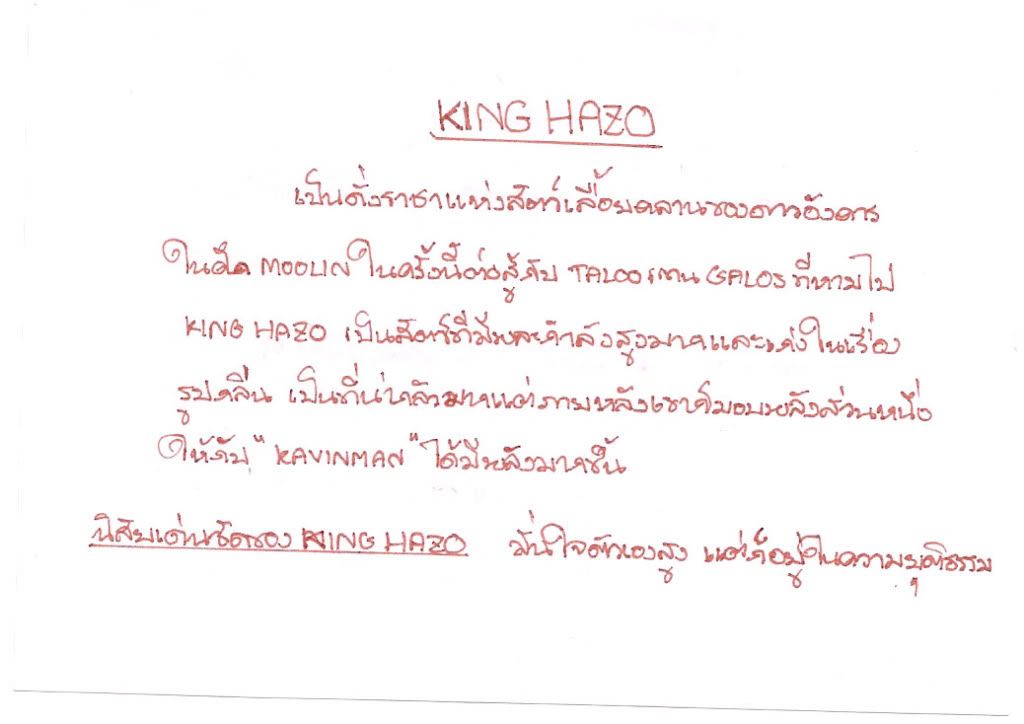 KING HAZO
เป็นดั่งราชาแห่งสัตว์เลื้อยคลานของดาวอังคาร
ในศึก MOOLIN ในครั้งนี้ต่อสู้กับ TALOO แทน GALOS ที่หายไป
KING HAZO เป็นสัตว์ที่มีพละกำลังสูงมากและเก่งในเรื่อง
รูปคลื่น เป็นที่น่ากลัวมากแต่ภายหลังเขาก็มอบพลังส่วนหนึ่ง
ให้กับ "KAVINMAN" ได้มีพลังมากขึ้น
นิสัยเด่นชัดของ KING HAZO มั่นใจตัวเองสูง แต่ก็อยู่ในความยุติธรรม